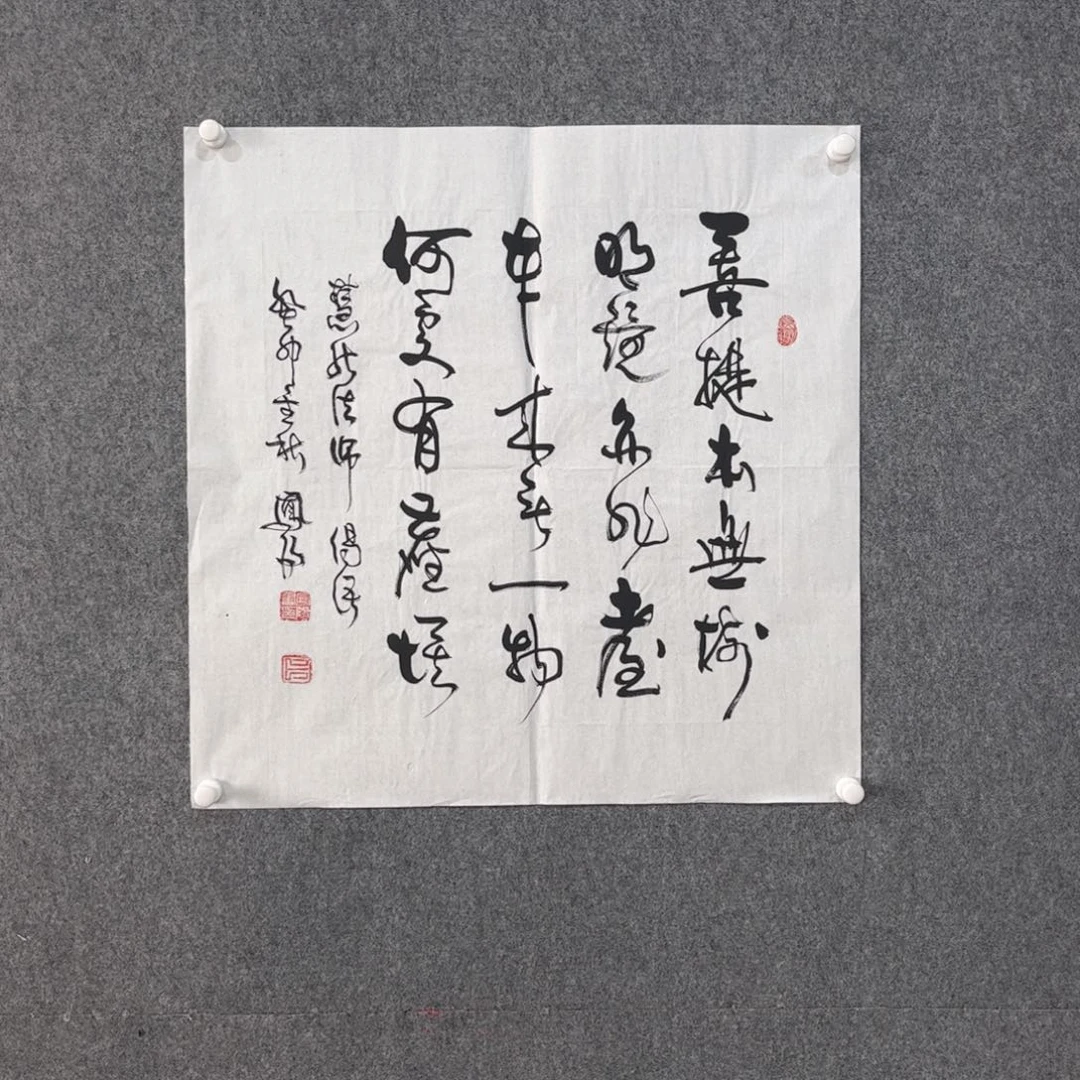 菩提本無樹
明鏡亦非臺
本來無一物
何處有塵埃
慧能法師 偈語
癸卯金秋